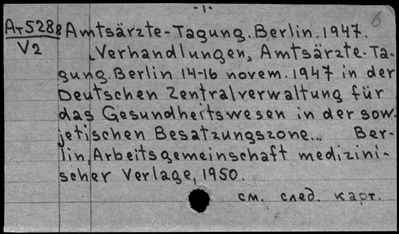 -1-
6
Ат528в Amtsärzte-Tagung. Berlin. 1947.
V2 Verhandlungen, Amtsärzte-Ta-
gung. Berlin 14-16 novem. 1947 in der
Deutschen Zentralverwaltung für
das Gesundheitswesen in der sow-
jetischen Besatzungszone... Ber-
lin, Arbeitsgemeinschaft medizini-
scher Verlage, 1950.
см. след. карт.